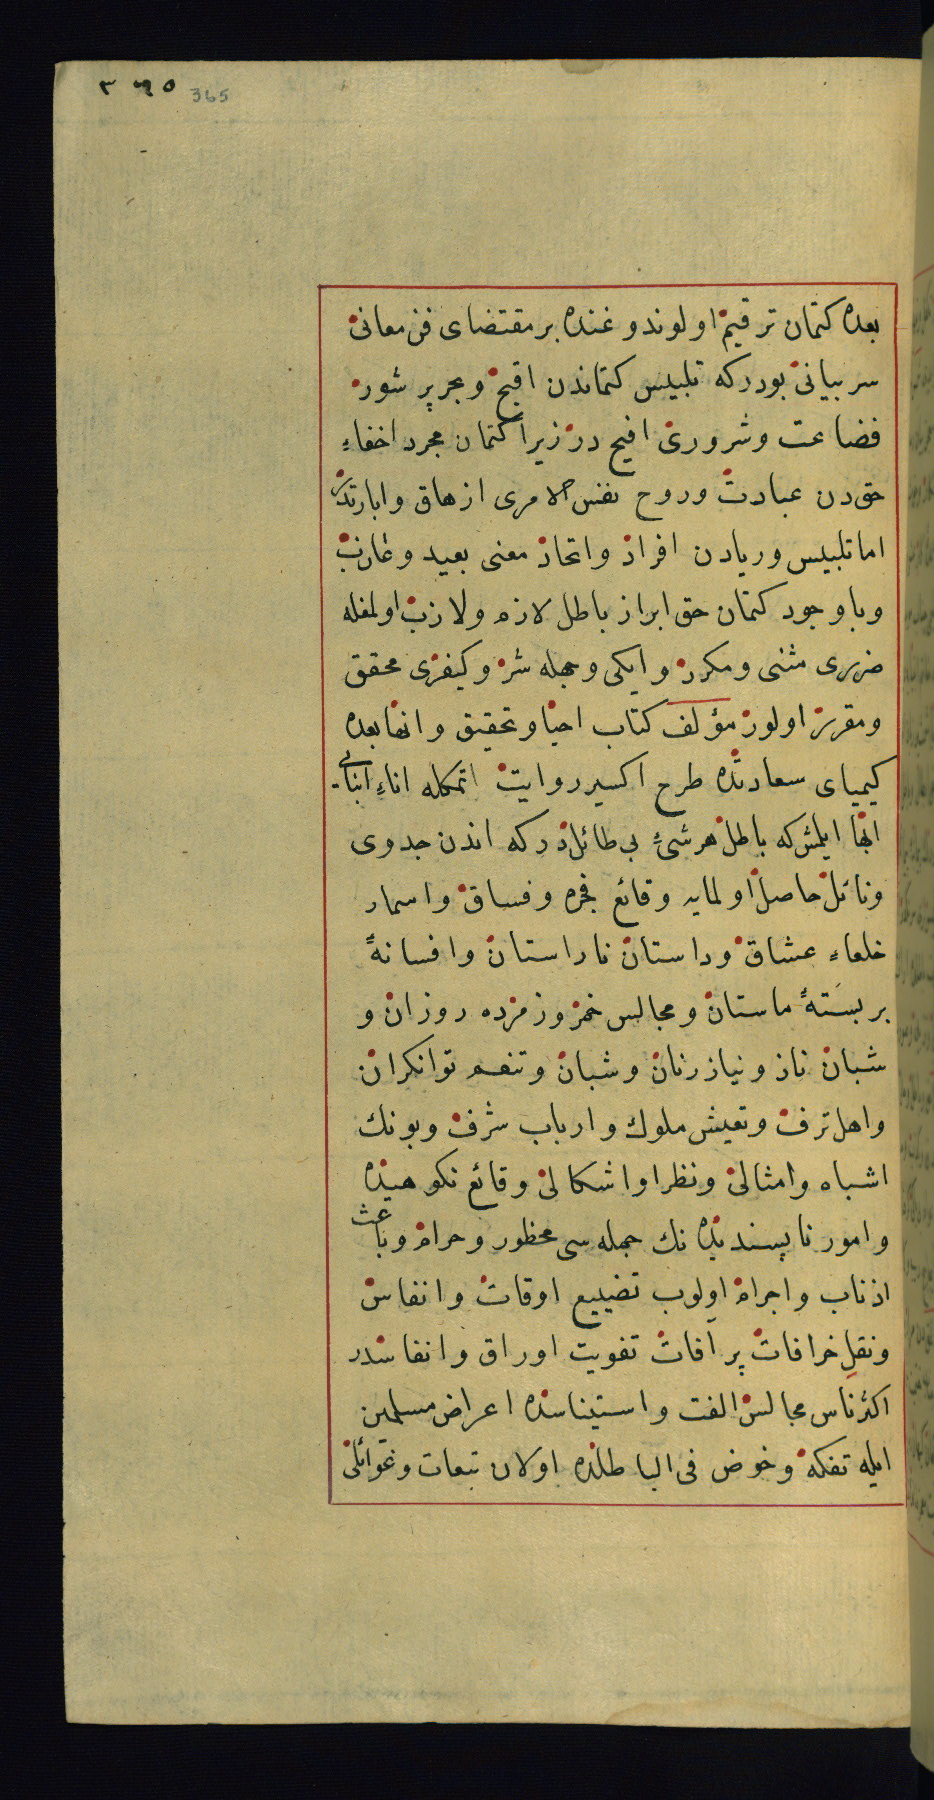 ۳۶۵ 365
بعده کتمان ترقیم اولوندوغنده بر مقتضای فن معانی
سر بیانی بودرکه تلبیس کتماندن اقبح و بحر پر شور
فضاعت و شروری افیح در زیرا کتمان مجرد اخفاء
حق دن عبادت وروح نفس الامری ازهاق و ابارتدر
اما تلبیس و ریادن افراد و اتحاد معنی بعید و غارب
و باوجود کتمان حق ابراز باطل لازم و لازب اولمغله
ضرری مثنی و مکرر و ایکی وجهله شر و کیفری محقق
و مقرر اولور مؤلف کتاب احیا و تحقیق و انها بعده
کیمیای سعادتده طرح اکسیر روایت اتمکله اناء انبائی
انها ایلمش که باطل هر شئ بی طائلدر که اندن جدوی
و نائل حاصل اولمایه وقائع فجره و فساق و اسمار
خلعاء عشاق و داستان ناراستان و افسانهٔ
بربستهٔ ماستان و مجالس خمر و زمزده روزان و
شبان ناز و نیاز زنان و شبان و تنعم توانکران
و اهل ترف و تعیش ملوك و ارباب شرف و بونك
اشباه و امثالی و نظرا و اشکالی وقائع نکوهیده
و امور ناپسندیده نك جمله سی محظور و حرام و باعث
اذناب و اجرام اولوب تضییع اوقات و انفاس
و نقل خرافات پر آفات تفویت اوراق و انفاسدر
اکثر ناس مجالس الفت و استیناسده اعراض مسلمین
ایله تفکه و خوض فی الباطلده اولان تبعات و غوائلی